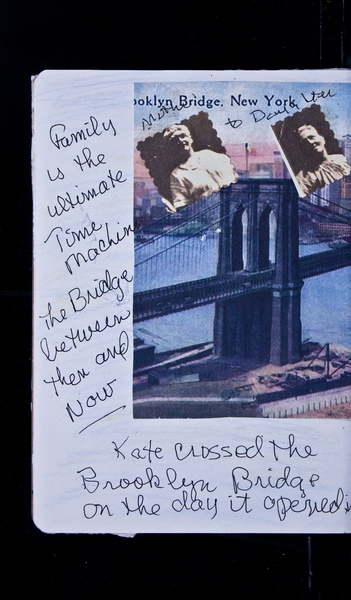 ooklyn Bridge, New York
Mother
to Daughter
Family
is the
ultimate
Time
Machine
The Bridge
between
then and
Now
Kate crossed the
Brooklyn Bridge
on the day it opened